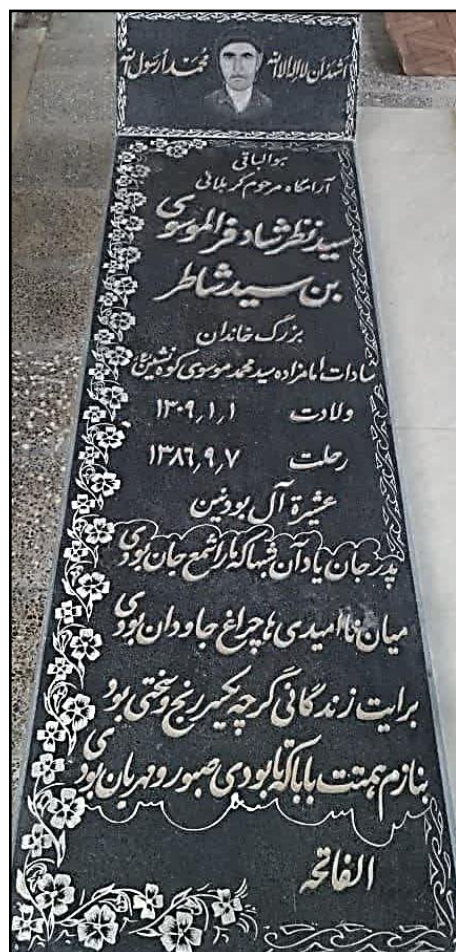 اشهد ان لا اله الا الله
محمد رسول الله
هوالباقی
آرامگاه مرحوم کربلائی
سید نظر شادفر الموسوی
بن سید شاطر
بزرگ خاندان
سادات امامزاده سید محمد موسوی کوه نشین
ولادت ۱۳۰۹٫۱٫۱
رحلت ۱۳۸۶٫۹٫۷
عشیرة آل بو
پدر جان یاد آن شبها که ما را شمع جان بودی
میان ناامیدی ها چراغ جاودان بودی
برایت زندگانی گرچه یکسر رنج و سختی بود
بنازم همتت بابا که تا بودی صبور و مهربان بودی
الفاتحه